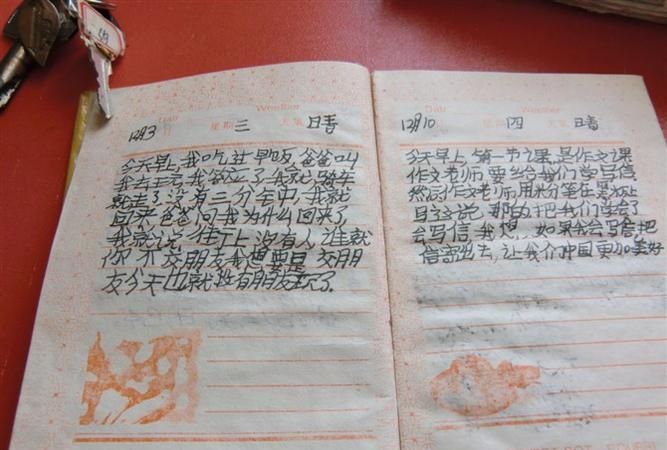 Date Weather
12月3日 星期三 天气 晴
今天早上,我吃过早饭,爸爸叫
我去 我答应了,我就骑车
就走了没有三分钟,我就
回来,爸爸问我为什么回来了
我就说,街上没有人,谁就
你不交朋友我想要是交朋
友今天也就没有朋友玩了.
Date Weather
12月10 星期四 天气 晴
今天早上,第一节课,是作文课
作文老师,要给我们学写信
然后作文老师,用米分笔在黑板
日 说,那 把我们学会了
会写信,我想,如果我会写信把
信寄出去,让我们中国更加美好